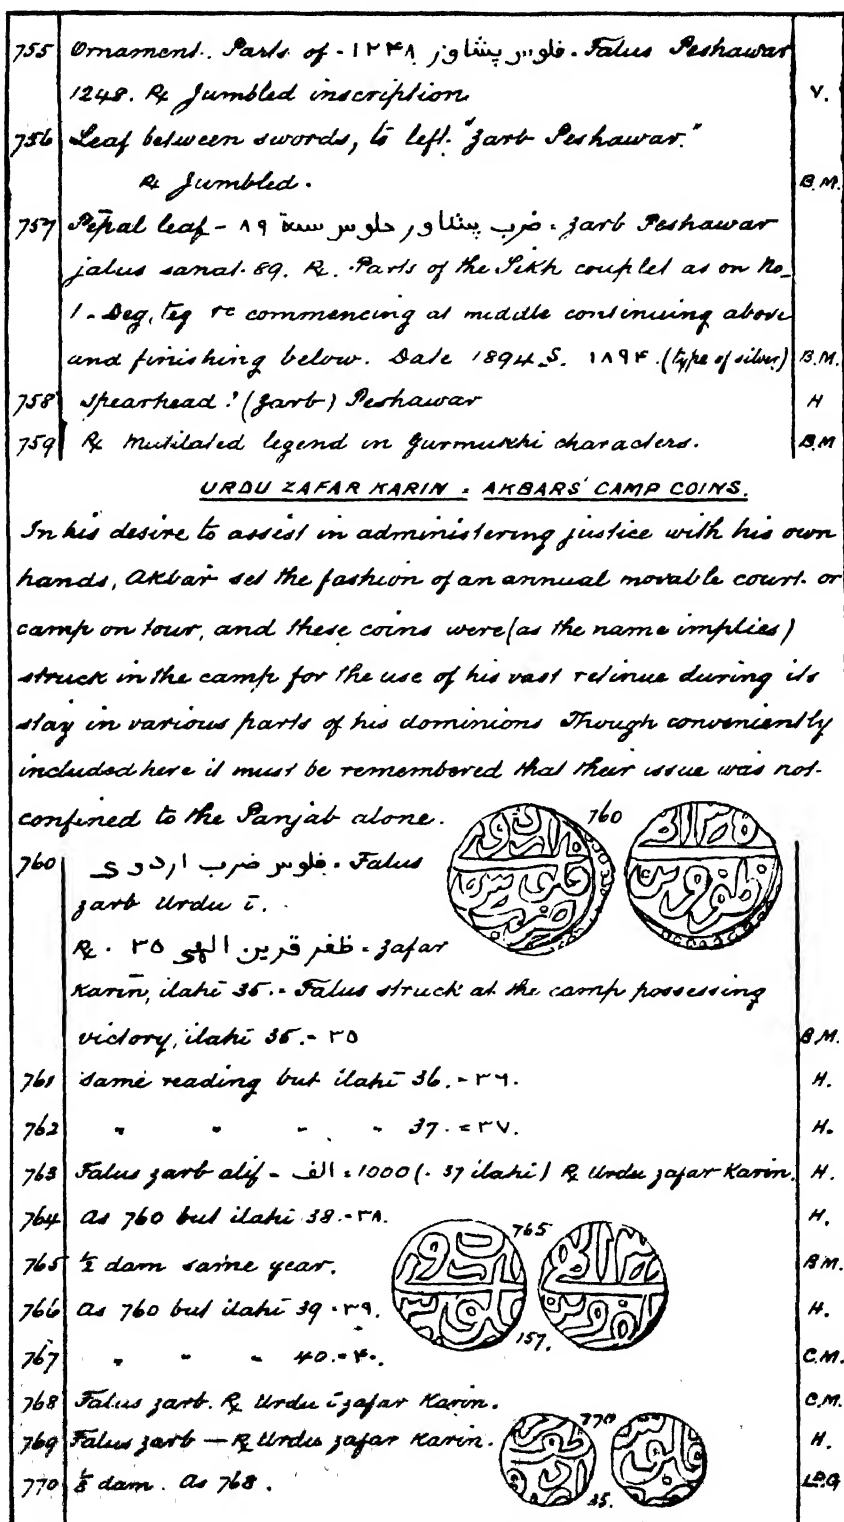 755 Ornament. Parts of - ١٢٤٨ فلوس پشاور . Falus Peshawar
1248. R Jumbled inscription. V.
756 Leaf between swords, to left. "Zarb Peshawar."
R Jumbled. B.M.
757 Pepal leaf - ضرب پشاور جلوس سنة ٨٩ . Zarb Peshawar
jalus sanat. 89. R. Parts of the Sikh couplet as on No.
1 - Deg, teg &c commencing at middle continuing above
and finishing below. Date 1894.S. ١٨٩۴ . (type of silver) B.M.
758 Spearhead? (Zarb) Peshawar H
759 R Mutilated legend in Gurmukhi characters. B.M
URDU ZAFAR KARIN = AKBARS' CAMP COINS.
In his desire to assist in administering justice with his own
hands, Akbar set the fashion of an annual movable court or
camp on tour, and these coins were (as the name implies)
struck in the camp for the use of his vast retinue during its
stay in various parts of his dominions Though conveniently
included here it must be remembered that their issue was not
confined to the Panjab alone.
760
760 فلوس ضرب اردوی . Falus
zarb Urdu ī.
R . ظفر قرین الهی ٣٥ . Zafar
Karīn, ilahī 35. = Falus struck at the camp possessing
victory, ilahī 35. - ٣٥ B.M.
761 Same reading but ilahī 36. - ٣٦. H.
762 " " " " 37. = ٣٧. H.
763 Falus zarb alif - الف = 1000 (. 37 ilahi) R Urdu zafar Karin. H.
764 As 760 but ilahi 38. - ٣٨. H.
765
765 ½ dam same year. B.M.
766 As 760 but ilahī 39 . ٣٩. H.
157.
767 " " " 40. = ۴٠. C.M.
768 Falus zarb. R Urdu ī zafar Karin. C.M.
770
769 Falus zarb — R Urdu zafar Karin. H.
770 ⅛ dam. As 768. L.D.G
35.